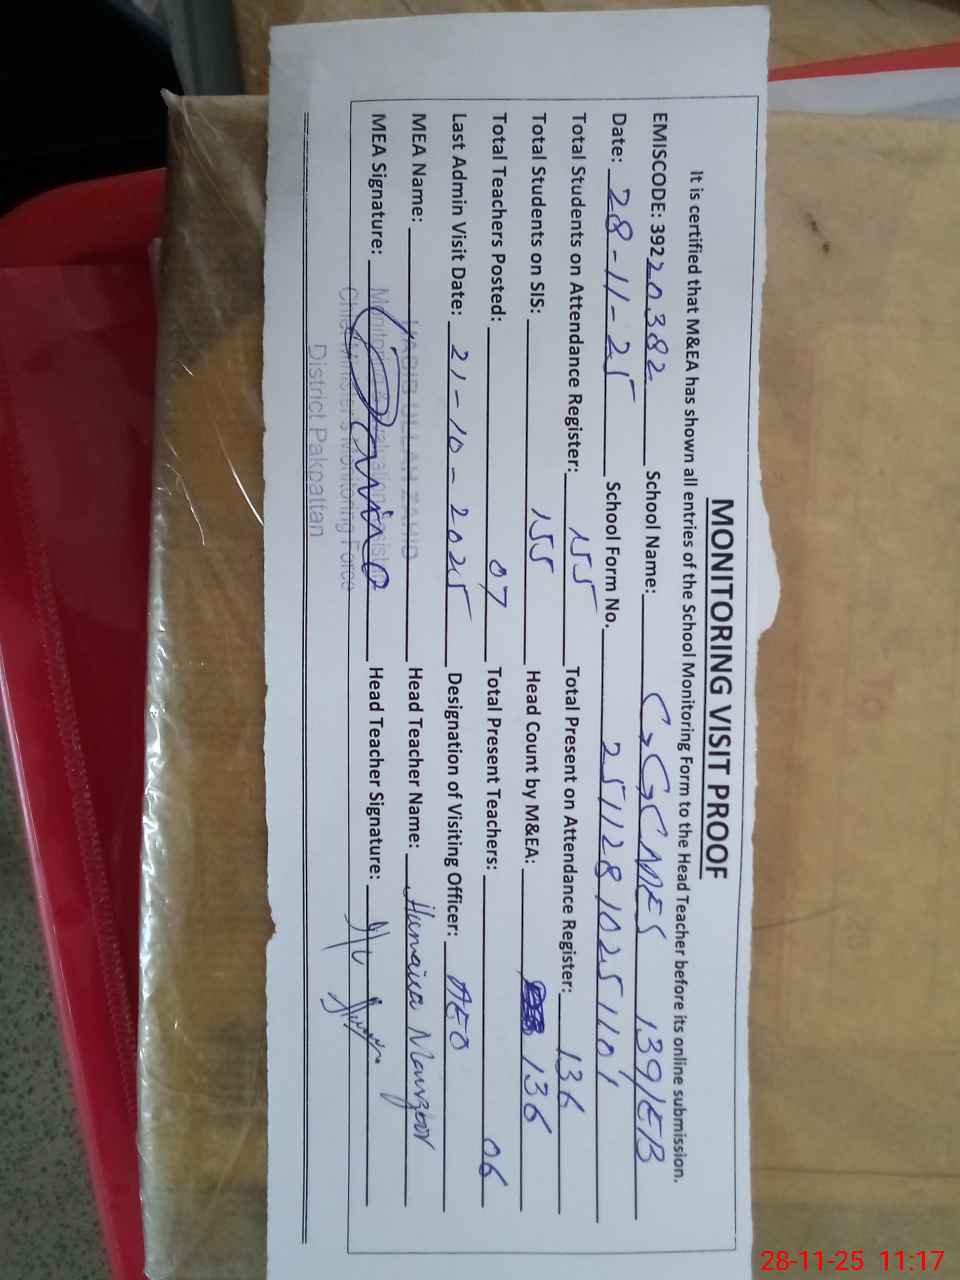 MONITORING VISIT PROOF
It is certified that M&EA has shown all entries of the School Monitoring Form to the Head Teacher before its online submission.
EMISCODE: 39220382 School Name: GGCMES 139/EB
Date: 28-11-25 School Form No. 25112810251101
Total Students on Attendance Register: 155 Total Present on Attendance Register: 136
Total Students on SIS: 155 Head Count by M&EA: 136
Total Teachers Posted: 07 Total Present Teachers: 06
Last Admin Visit Date: 21-10-2025 Designation of Visiting Officer: AEO
MEA Name: ULLAH ZAHID Head Teacher Name: Humaira Manzoor
MEA Signature: Head Teacher Signature:
Monitoring & Evaluation Assistant
Chief Minister's Monitoring Force
District Pakpattan
28-11-25 11:17